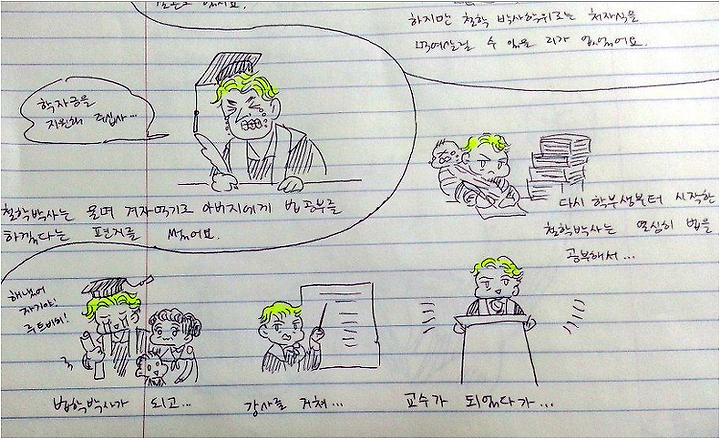 하지만 철학 박사학위로는 처자식을
먹여살릴 수 있을 리가 없었어요.
학자금을
지원해 주십사...
철학박사는 울며 겨자먹기로 아버지에게 법 공부를
하겠다는 편지를 썼어요.
다시 학부생부터 시작한
철학박사는 열심히 법을
공부해서...
해냈어
자기야!
법학박사가 되고...
강사를 거쳐...
교수가 되었다가...